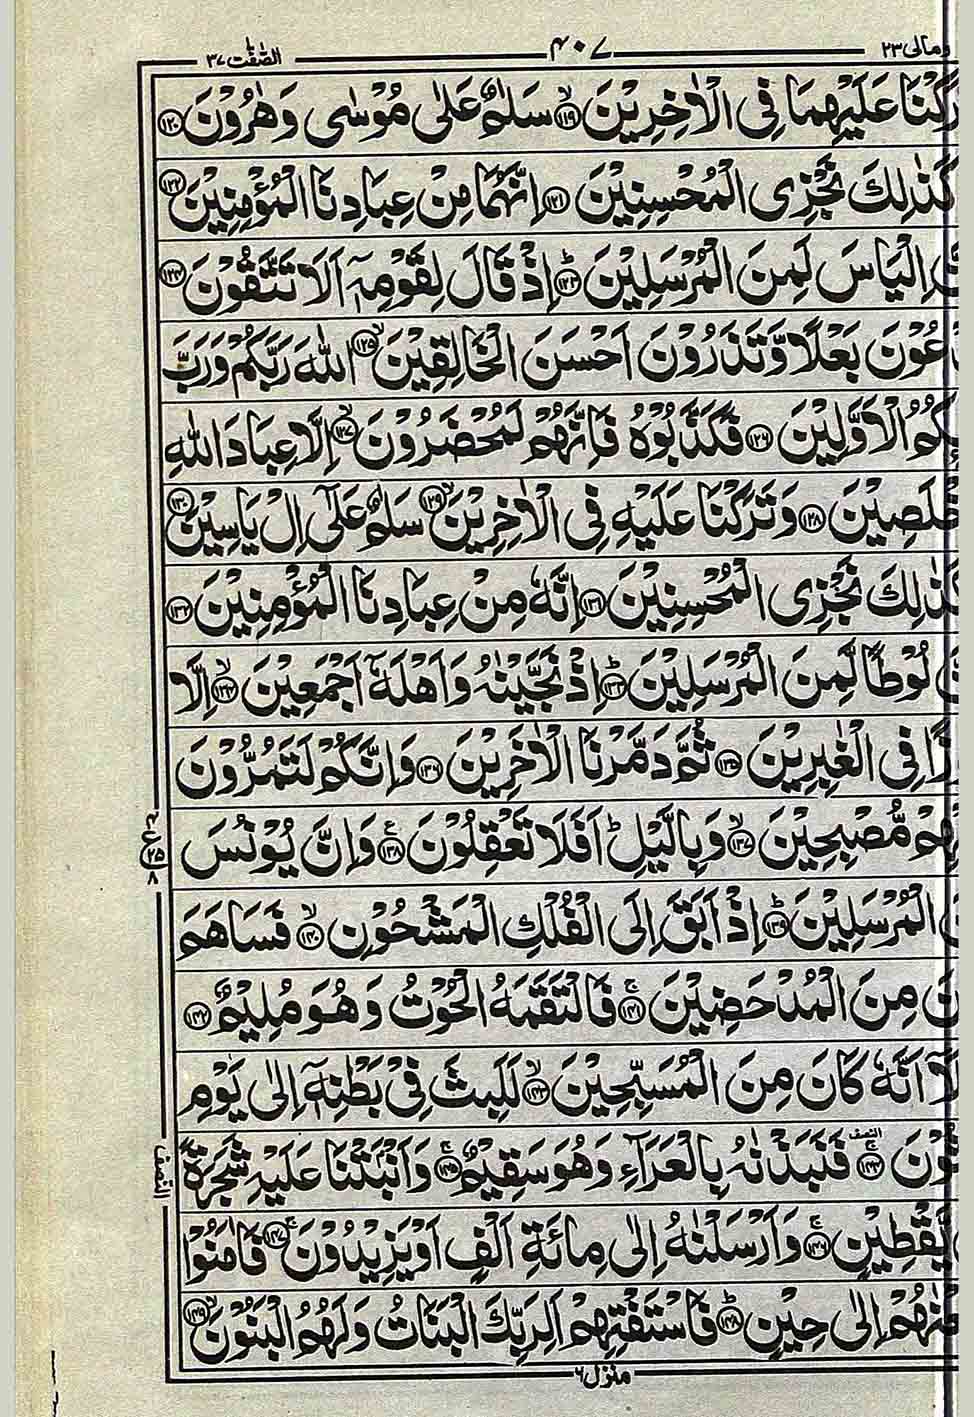 ومالی ۲۳ ۴۰۷ الصّٰفّٰت ۳۷
رَكْنَا عَلَيْهِمَا فِى الْاٰخِرِيْنَ ۙ﴿۱۱۹﴾ سَلٰمٌ عَلٰى مُوْسٰى وَهٰرُوْنَ ﴿۱۲۰﴾
كَذٰلِكَ نَجْزِى الْمُحْسِنِيْنَ ﴿۱۲۱﴾ اِنَّهُمَا مِنْ عِبَادِنَا الْمُؤْمِنِيْنَ ﴿۱۲۲﴾
اِلْيَاسَ لَمِنَ الْمُرْسَلِيْنَ ؕ﴿۱۲۳﴾ اِذْ قَالَ لِقَوْمِهٖۤ اَلَا تَتَّقُوْنَ ﴿۱۲۴﴾
عُوْنَ بَعْلًا وَّتَذَرُوْنَ اَحْسَنَ الْخَالِقِيْنَ ۙ﴿۱۲۵﴾ اللّٰهَ رَبَّكُمْ وَرَبَّ
كُمُ الْاَوَّلِيْنَ ﴿۱۲۶﴾ فَكَذَّبُوْهُ فَاِنَّهُمْ لَمُحْضَرُوْنَ ۙ﴿۱۲۷﴾ اِلَّا عِبَادَ اللّٰهِ
لَصِيْنَ ﴿۱۲۸﴾ وَتَرَكْنَا عَلَيْهِ فِى الْاٰخِرِيْنَ ۙ﴿۱۲۹﴾ سَلٰمٌ عَلٰٓى اِلْ يَاسِيْنَ ﴿۱۳۰﴾
كَذٰلِكَ نَجْزِى الْمُحْسِنِيْنَ ﴿۱۳۱﴾ اِنَّهٗ مِنْ عِبَادِنَا الْمُؤْمِنِيْنَ ﴿۱۳۲﴾
لُوْطًا لَّمِنَ الْمُرْسَلِيْنَ ؕ﴿۱۳۳﴾ اِذْ نَجَّيْنٰهُ وَاَهْلَهٗۤ اَجْمَعِيْنَ ۙ﴿۱۳۴﴾ اِلَّا
فِى الْغٰبِرِيْنَ ﴿۱۳۵﴾ ثُمَّ دَمَّرْنَا الْاٰخَرِيْنَ ﴿۱۳۶﴾ وَاِنَّكُمْ لَتَمُرُّوْنَ
هِمْ مُّصْبِحِيْنَ ۙ﴿۱۳۷﴾ وَبِالَّيْلِ ؕ اَفَلَا تَعْقِلُوْنَ ﴿۱۳۸﴾ وَاِنَّ يُوْنُسَ
الْمُرْسَلِيْنَ ؕ﴿۱۳۹﴾ اِذْ اَبَقَ اِلَى الْفُلْكِ الْمَشْحُوْنِ ۙ﴿۱۴۰﴾ فَسَاهَمَ
مِنَ الْمُدْحَضِيْنَ ۚ﴿۱۴۱﴾ فَالْتَقَمَهُ الْحُوْتُ وَهُوَ مُلِيْمٌ ﴿۱۴۲﴾
اَنَّهٗ كَانَ مِنَ الْمُسَبِّحِيْنَ ۙ﴿۱۴۳﴾ لَلَبِثَ فِىْ بَطْنِهٖۤ اِلٰى يَوْمِ
ثُوْنَ ﴿۱۴۴﴾ فَنَبَذْنٰهُ بِالْعَرَآءِ وَهُوَ سَقِيْمٌ ۚ﴿۱۴۵﴾ وَاَنْۢبَتْنَا عَلَيْهِ شَجَرَةً
يَّقْطِيْنٍ ۚ﴿۱۴۶﴾ وَاَرْسَلْنٰهُ اِلٰى مِائَةِ اَلْفٍ اَوْ يَزِيْدُوْنَ ۚ﴿۱۴۷﴾ فَاٰمَنُوْا
هُمْ اِلٰى حِيْنٍ ؕ﴿۱۴۸﴾ فَاسْتَفْتِهِمْ اَلِرَبِّكَ الْبَنَاتُ وَلَهُمُ الْبَنُوْنَ ۙ﴿۱۴۹﴾
منزل ۶
ع ۲۵ ۸
النصف